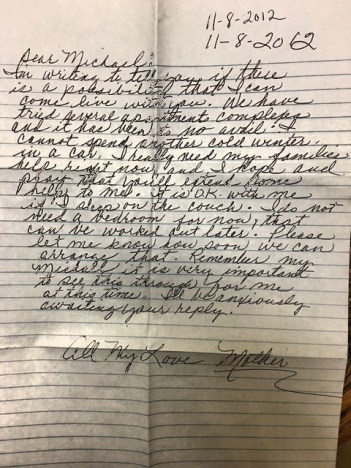 11-8-2012
11-8-2062
Dear Michael:
Im writing to tell you if there
is a possibility that I can
come live with you. We have
tried several apartment complexes
and it has been to no avail. I
cannot spend another cold winter
in a car. I really need my families
help right now and I hope and
pray that you'll extend some
help to me. It is OK with me
if I sleep on the couch. I do not
need a bedroom for now, that
can be worked out later. Please
let me know how soon we can
arrange that. Remember my
it is very important
to see this through for me
at this time. I'll be anxiously
awaiting your reply.
All My Love Mother